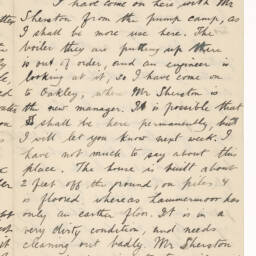 I have come on here with Mr
Sherston from the pump camp, as
I shall be more use here. The
boiler they are putting up there
is out of order, and an engineer is
looking at it, so I have come on
to Oakley, where Mr Sherston is
the new manager. It is possible that
I shall be here permanently, but
I will let you know next week. I
have not much to say about this
place. The house is built about
2 feet off the ground, on piles &
is floored, whereas Lammermoor has
only an earthen floor. It is in a
very dirty condition, and needs
cleaning out badly. Mr Sherston